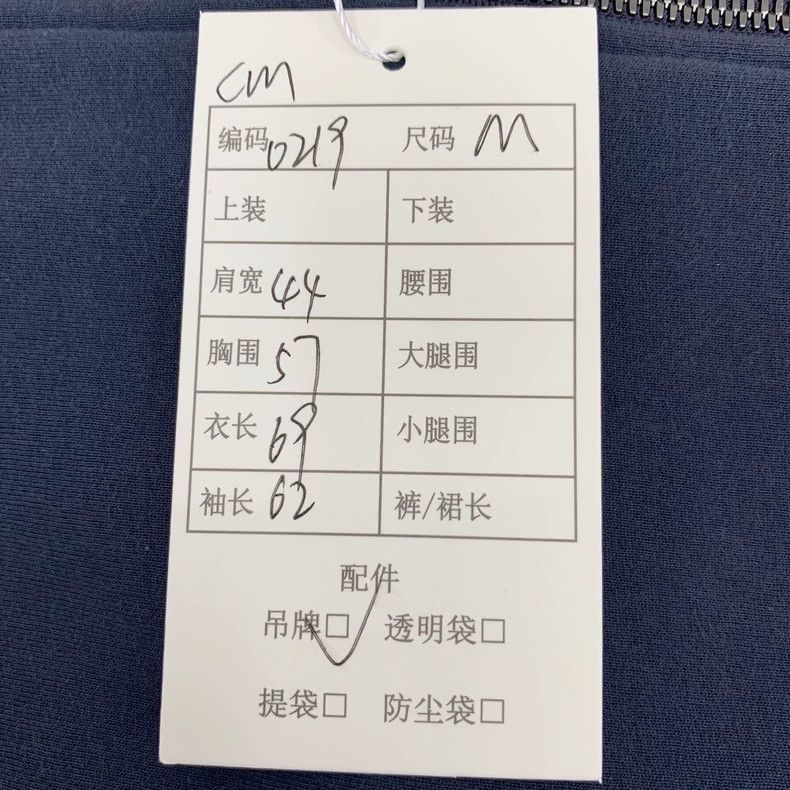 CM
编码 0219 尺码 M
上装 下装
肩宽 44 腰围
胸围 57 大腿围
衣长 69 小腿围
袖长 62 裤/裙长
配件
吊牌□ 透明袋□
提袋□ 防尘袋□